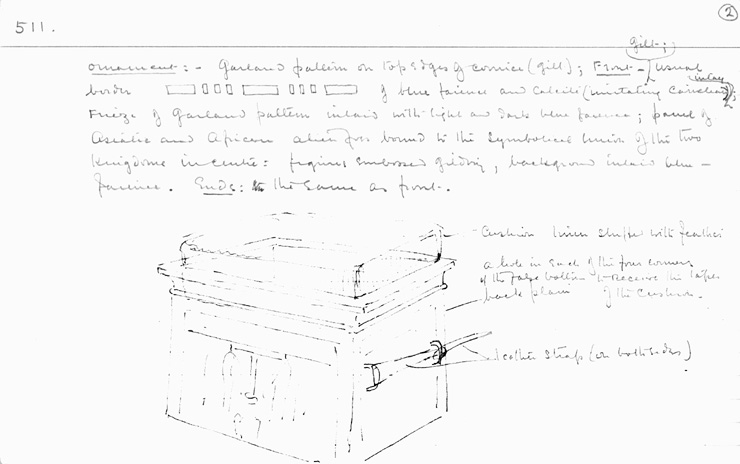 2
511.
Gilt;
Ornament: - Garland pattern on top edges of cornice (gilt); Front - usual inlay
border of blue faience and calcite (imitating
Frieze of Garland pattern inlaid with light and dark blue faience; panel of
Asiatic and African alien foes bound to the symbolical union of the two
Kingdoms in centre: figures embossed gilding, background inlaid blue -
faience. Ends: the same as front.
Cushion linen stuffed with feather
a hole in each of the four corners
of the false bottom to receive the tapes
back plain of the cushion.
leather straps (on both sides)